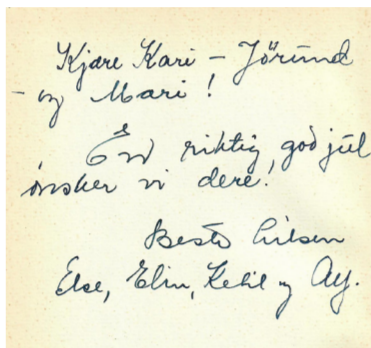 Kjære Kari – Jörund
– og Mari!
En riktig god jul
ønsker vi dere!
Beste hilsen
Else, Elin, Ketil og Alf.